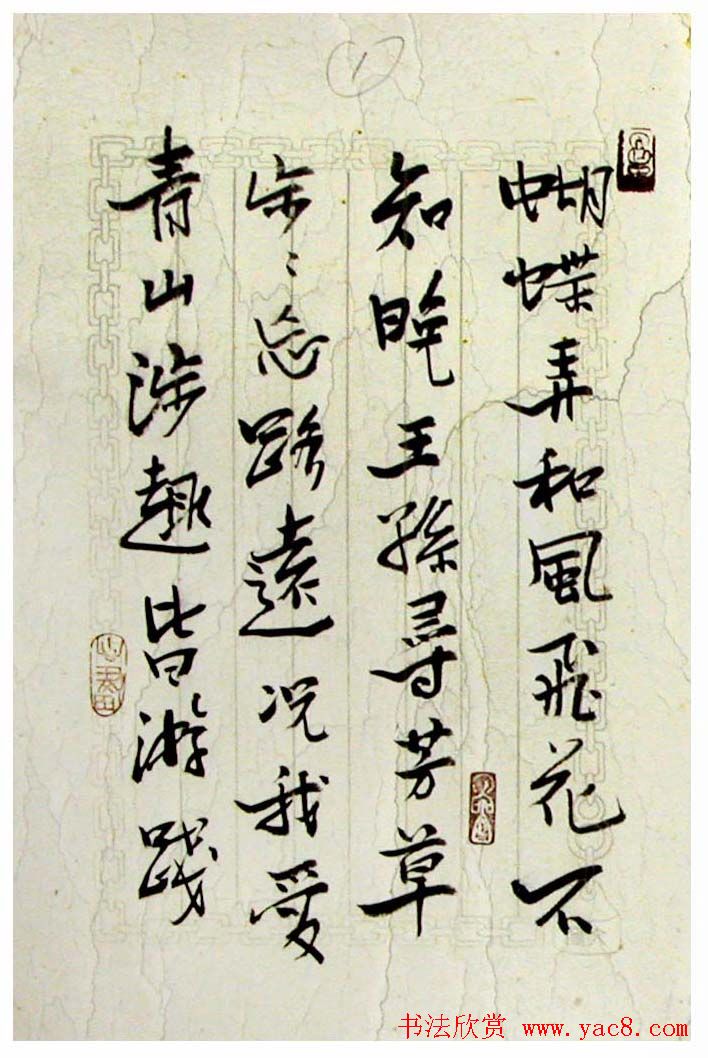 蝴蝶弄和风飛花不
知晚王孫尋芳草
步〻忘路遠况我愛
青山涉趣皆游踐
1
书法欣赏 www.yac8.com